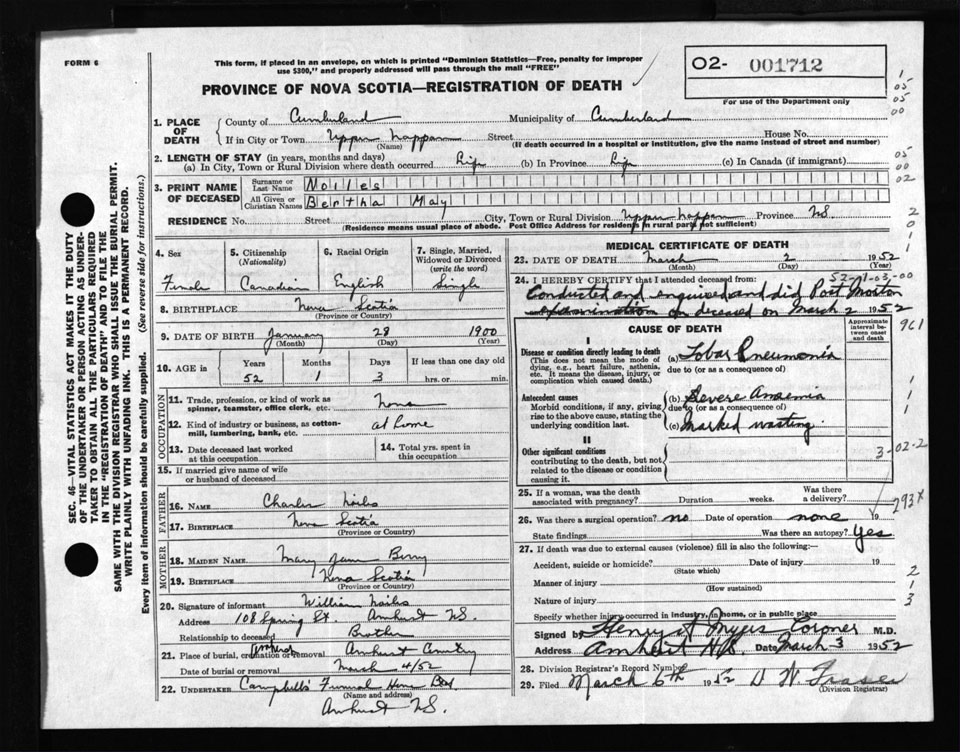 FORM 6
This form, if placed in an envelope, on which is printed "Dominion Statistics—Free, penalty for improper
use $300," and properly addressed will pass through the mail "FREE"
PROVINCE OF NOVA SCOTIA—REGISTRATION OF DEATH
02- 001712
For use of the Department only
1. PLACE OF DEATH
County of Cumberland Municipality of Cumberland
If in City or Town Upper Nappan Street House No.
(Name) (If death occurred in a hospital or institution, give the name instead of street and number)
2. LENGTH OF STAY (in years, months and days)
(a) In City, Town or Rural Division where death occurred Life (b) In Province Life (c) In Canada (if immigrant)
3. PRINT NAME OF DECEASED
Surname or Last Name Noiles
All Given or Christian Names Bertha May
RESIDENCE No. Street City, Town or Rural Division Upper Nappan Province N.S.
(Residence means usual place of abode. Post Office Address for residents in rural parts not sufficient)
4. Sex Female
5. Citizenship (Nationality) Canadian
6. Racial Origin English
7. Single, Married, Widowed or Divorced (write the word) Single
8. BIRTHPLACE Nova Scotia
(Province or Country)
9. DATE OF BIRTH January 28 1900
(Month) (Day) (Year)
10. AGE in Years Months Days If less than one day old
52 1 3 hrs. or min.
OCCUPATION
11. Trade, profession, or kind of work as
spinner, teamster, office clerk, etc. None
12. Kind of industry or business, as cotton-
mill, lumbering, bank, etc. at home
13. Date deceased last worked
at this occupation
14. Total yrs. spent in
this occupation
15. If married give name of wife
or husband of deceased
FATHER
16. NAME Charles Noiles
17. BIRTHPLACE Nova Scotia
(Province or Country)
MOTHER
18. MAIDEN NAME Mary Jane Berry
19. BIRTHPLACE Nova Scotia
(Province or Country)
20. Signature of informant William Noiles
Address 108 Spring St. Amherst N.S.
Relationship to deceased Brother
21. Place of burial, cremation or removal Amherst Cemetery
Date of burial or removal March 4/52
22. UNDERTAKER Campbells Funeral Home
(Name and address)
Amherst N.S.
MEDICAL CERTIFICATE OF DEATH
23. DATE OF DEATH March 2 1952
(Month) (Day) (Year)
24. I HEREBY CERTIFY that I attended deceased from:
Conducted and enquired and did Post Mortem
examination on deceased on March 2 1952
CAUSE OF DEATH
Approximate interval between onset and death
I
Disease or condition directly leading to death
(This does not mean the mode of
dying, e.g., heart failure, asthenia,
etc. It means the disease, injury, or
complication which caused death.)
(a) Lobar Pneumonia
due to (or as a consequence of)
Antecedent causes
Morbid conditions, if any, giving
rise to the above cause, stating the
underlying condition last.
(b) Severe Anaemia
due to (or as a consequence of)
(c) Marked wasting.
II
Other significant conditions
contributing to the death, but not
related to the disease or condition
causing it.
25. If a woman, was the death
associated with pregnancy? Duration weeks. Was there a delivery?
26. Was there a surgical operation? no Date of operation none 19
State findings Was there an autopsy? Yes
27. If death was due to external causes (violence) fill in also the following:—
Accident, suicide or homicide? Date of injury 19
(State which)
Manner of injury
(How sustained)
Nature of injury
Specify whether injury occurred in industry, in home, or in public place
Signed by Henry A Myers Coroner M.D.
Address Amherst N.S. Date March 3 1952
28. Division Registrar's Record Number
29. Filed March 6th 1952 D W Fraser
(Division Registrar)
SEC. 46—VITAL STATISTICS ACT MAKES IT THE DUTY
OF THE UNDERTAKER OR PERSON ACTING AS UNDER-
TAKER TO OBTAIN ALL THE PARTICULARS REQUIRED
IN THE "REGISTRATION OF DEATH" AND TO FILE THE
SAME WITH THE DIVISION REGISTRAR WHO SHALL ISSUE THE BURIAL PERMIT.
WRITE PLAINLY WITH UNFADING INK. THIS IS A PERMANENT RECORD.
Every item of information should be carefully supplied. (See reverse side for instructions.)
1
05
05
00
05
00
02
2
0
1
1
961
1
1
1
3-02-2
293X
2
1
3